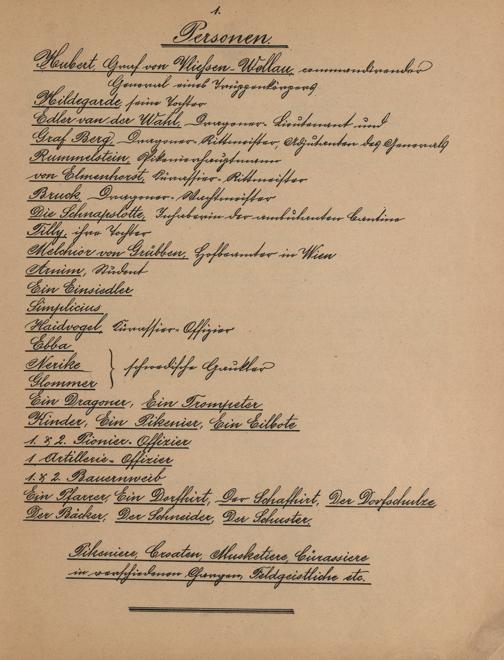 1.
Personen.
Hubert, Graf von Vließen-Wollau, commandirender
General eines Truppenkörpers
Hildegarde, seine Tochter
Edler van der Wahl, Dragoner-Lieutenant und
Graf Berg, Dragoner-Rittmeister, Adjutanten des Generals
Rummelstein, Pikenierhauptmann
von Elmenhorst, Kürassier-Rittmeister
Bruck, Dragoner-Wachtmeister
Die Schnapslotte, Inhaberin der ambulanten Cantine
Tilly, ihre Tochter
Melchior von Grübben, Hofbeamter in Wien
Arnim, Student
Ein Einsiedler
Simplicius
Haidvogel, Kürassier-Offizier
Ebba
Nerike } schwedische Gaukler
Glommer
Ein Dragoner, Ein Trompeter
Kinder, Ein Pikenier, Ein Eilbote
1. & 2. Pionier-Offizier
1. Artillerie-Offizier
1. & 2. Bauernweib
Ein Pfarrer, Ein Dorfhirt, Der Schafhirt, Der Dorfschulze
Der Bäcker, Der Schneider, Der Schuster.
Pikeniere, Croaten, Musketiere, Cürassiere
in verschiedenen Chargen, Feldgeistliche etc.